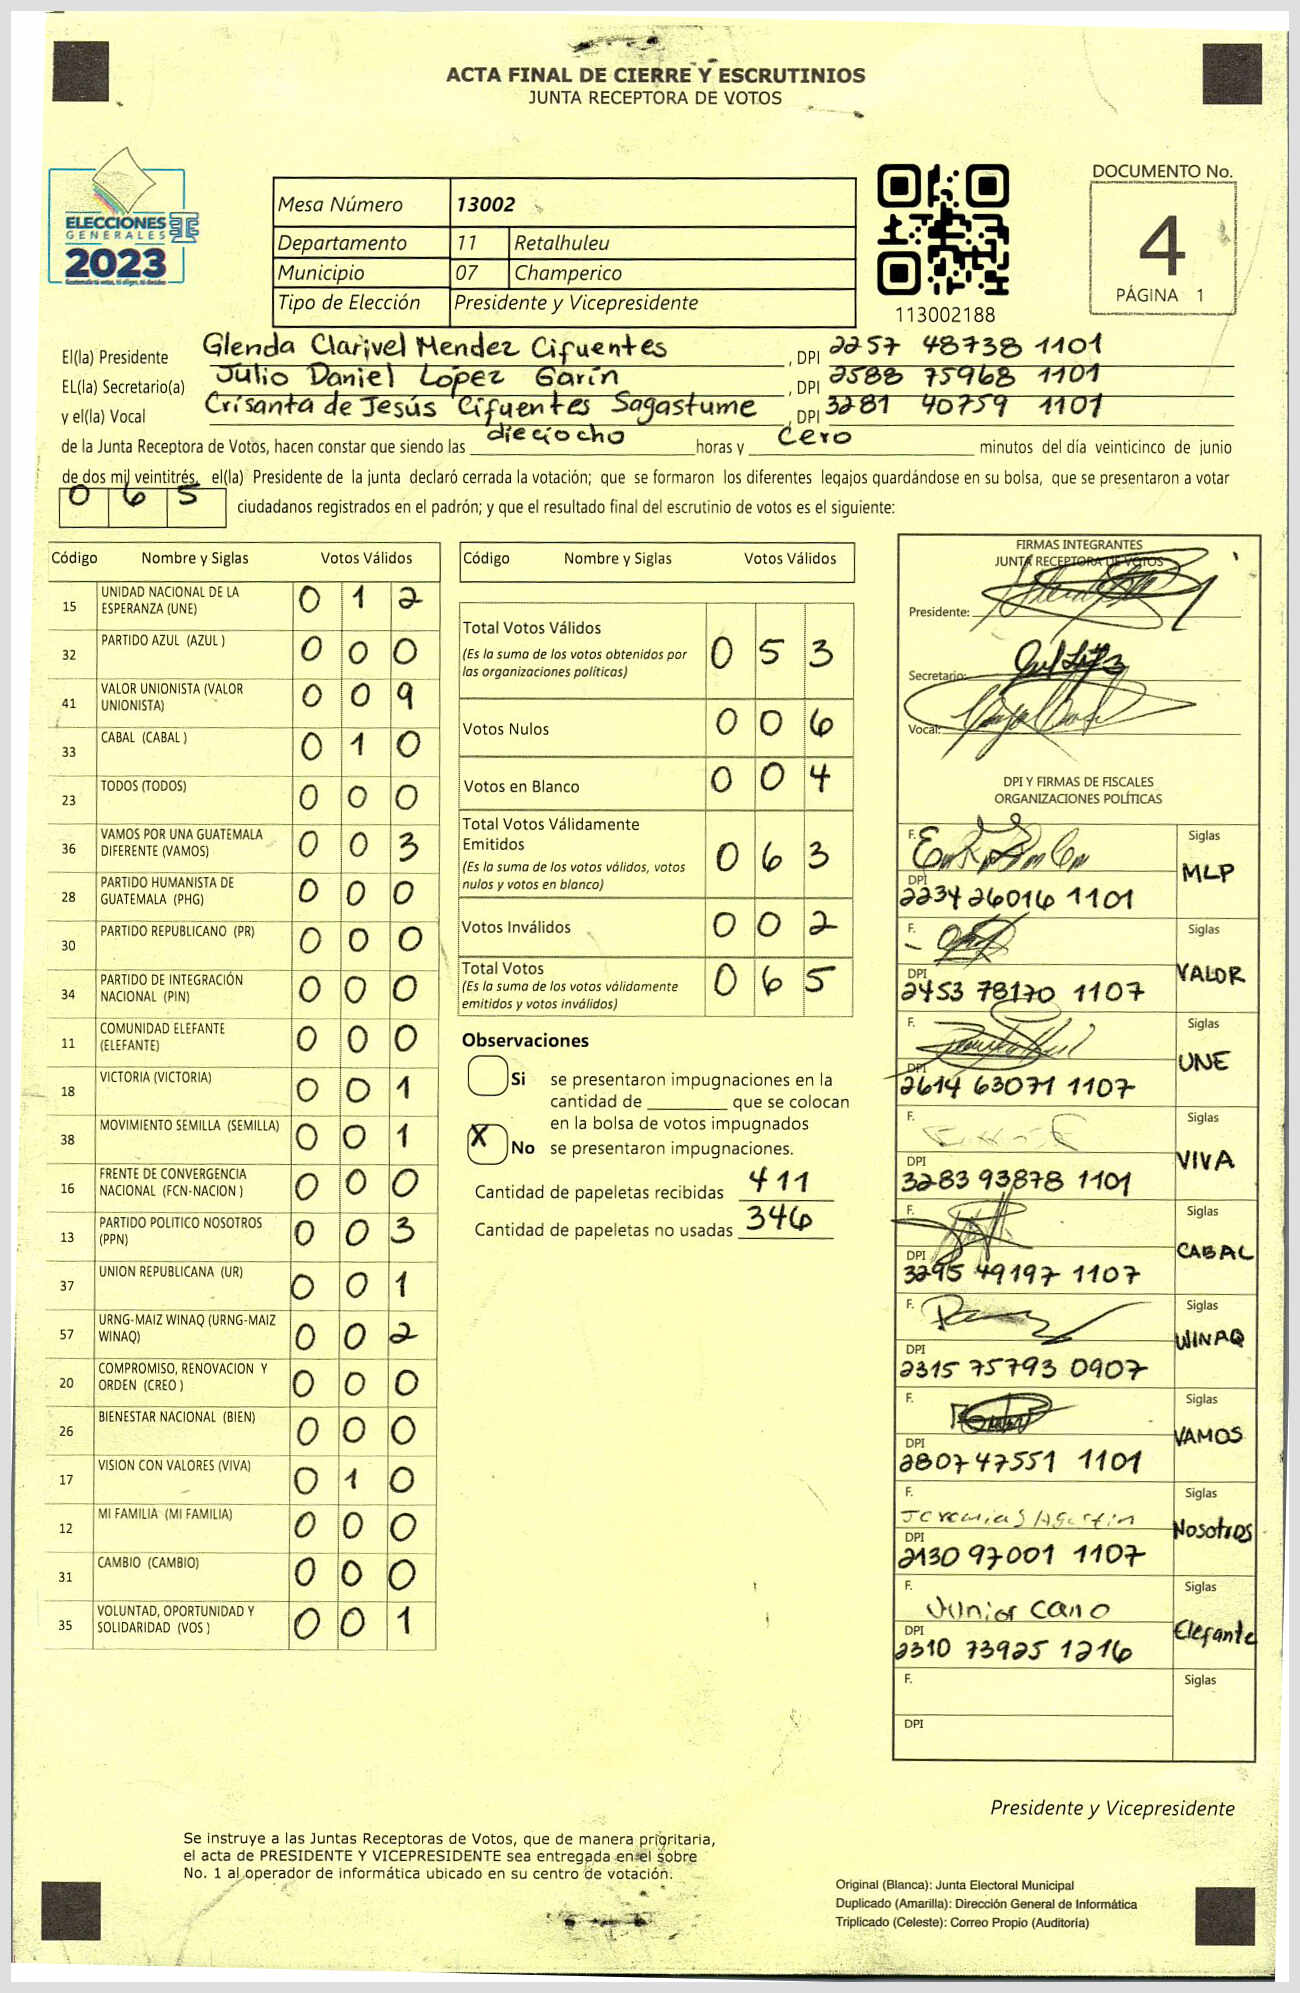 ACTA FINAL DE CIERRE Y ESCRUTINIOS
JUNTA RECEPTORA DE VOTOS
ELECCIONES
GENERALES
2023
Mesa Número 13002
Departamento 11 Retalhuleu
Municipio 07 Champerico
Tipo de Elección Presidente y Vicepresidente
113002188
DOCUMENTO No.
4
PÁGINA 1
El(la) Presidente Glenda Clarivel Mendez Cifuentes, DPI 2257 48738 1101
EL(la) Secretario(a) Julio Daniel López Garín, DPI 2588 75968 1101
y el(la) Vocal Crisanta de Jesús Cifuentes Sagastume, DPI 3281 40759 1101
de la Junta Receptora de Votos, hacen constar que siendo las dieciocho horas y cero minutos del día veinticinco de junio
de dos mil veintitrés, el(la) Presidente de la junta declaró cerrada la votación; que se formaron los diferentes legajos guardándose en su bolsa, que se presentaron a votar
0 6 5 ciudadanos registrados en el padrón; y que el resultado final del escrutinio de votos es el siguiente:
Código Nombre y Siglas Votos Válidos
15 UNIDAD NACIONAL DE LA ESPERANZA (UNE) 0 1 2
32 PARTIDO AZUL (AZUL ) 0 0 0
41 VALOR UNIONISTA (VALOR UNIONISTA) 0 0 9
33 CABAL (CABAL ) 0 1 0
23 TODOS (TODOS) 0 0 0
36 VAMOS POR UNA GUATEMALA DIFERENTE (VAMOS) 0 0 3
28 PARTIDO HUMANISTA DE GUATEMALA (PHG) 0 0 0
30 PARTIDO REPUBLICANO (PR) 0 0 0
34 PARTIDO DE INTEGRACIÓN NACIONAL (PIN) 0 0 0
11 COMUNIDAD ELEFANTE (ELEFANTE) 0 0 0
18 VICTORIA (VICTORIA) 0 0 1
38 MOVIMIENTO SEMILLA (SEMILLA) 0 0 1
16 FRENTE DE CONVERGENCIA NACIONAL (FCN-NACION ) 0 0 0
13 PARTIDO POLITICO NOSOTROS (PPN) 0 0 3
37 UNION REPUBLICANA (UR) 0 0 1
57 URNG-MAIZ WINAQ (URNG-MAIZ WINAQ) 0 0 2
20 COMPROMISO, RENOVACION Y ORDEN (CREO ) 0 0 0
26 BIENESTAR NACIONAL (BIEN) 0 0 0
17 VISION CON VALORES (VIVA) 0 1 0
12 MI FAMILIA (MI FAMILIA) 0 0 0
31 CAMBIO (CAMBIO) 0 0 0
35 VOLUNTAD, OPORTUNIDAD Y SOLIDARIDAD (VOS ) 0 0 1
Código Nombre y Siglas Votos Válidos
Total Votos Válidos 0 5 3
(Es la suma de los votos obtenidos por
las organizaciones políticas)
Votos Nulos 0 0 6
Votos en Blanco 0 0 4
Total Votos Válidamente
Emitidos 0 6 3
(Es la suma de los votos válidos, votos
nulos y votos en blanco)
Votos Inválidos 0 0 2
Total Votos 0 6 5
(Es la suma de los votos válidamente
emitidos y votos inválidos)
Observaciones
Si se presentaron impugnaciones en la
cantidad de ________ que se colocan
en la bolsa de votos impugnados
X No se presentaron impugnaciones.
Cantidad de papeletas recibidas 411
Cantidad de papeletas no usadas 346
FIRMAS INTEGRANTES
JUNTA RECEPTORA DE VOTOS
Presidente:
Secretario:
Vocal:
DPI Y FIRMAS DE FISCALES
ORGANIZACIONES POLÍTICAS
F. Siglas MLP
DPI 2234 26016 1101
F. Siglas VALOR
DPI 2453 78170 1107
F. Siglas UNE
DPI 2614 63071 1107
F. Siglas VIVA
DPI 3283 93878 1101
F. Siglas CABAL
DPI 3295 49197 1107
F. Siglas WINAQ
DPI 2315 75793 0907
F. Siglas VAMOS
DPI 2807 47551 1101
F. Jeremias Agustin Siglas Nosotros
DPI 2130 97001 1107
F. Junior Cano Siglas Elefante
DPI 2310 73925 1216
F. Siglas
DPI
Presidente y Vicepresidente
Se instruye a las Juntas Receptoras de Votos, que de manera prioritaria,
el acta de PRESIDENTE Y VICEPRESIDENTE sea entregada en el sobre
No. 1 al operador de informática ubicado en su centro de votación.
Original (Blanca): Junta Electoral Municipal
Duplicado (Amarilla): Dirección General de Informática
Triplicado (Celeste): Correo Propio (Auditoría)